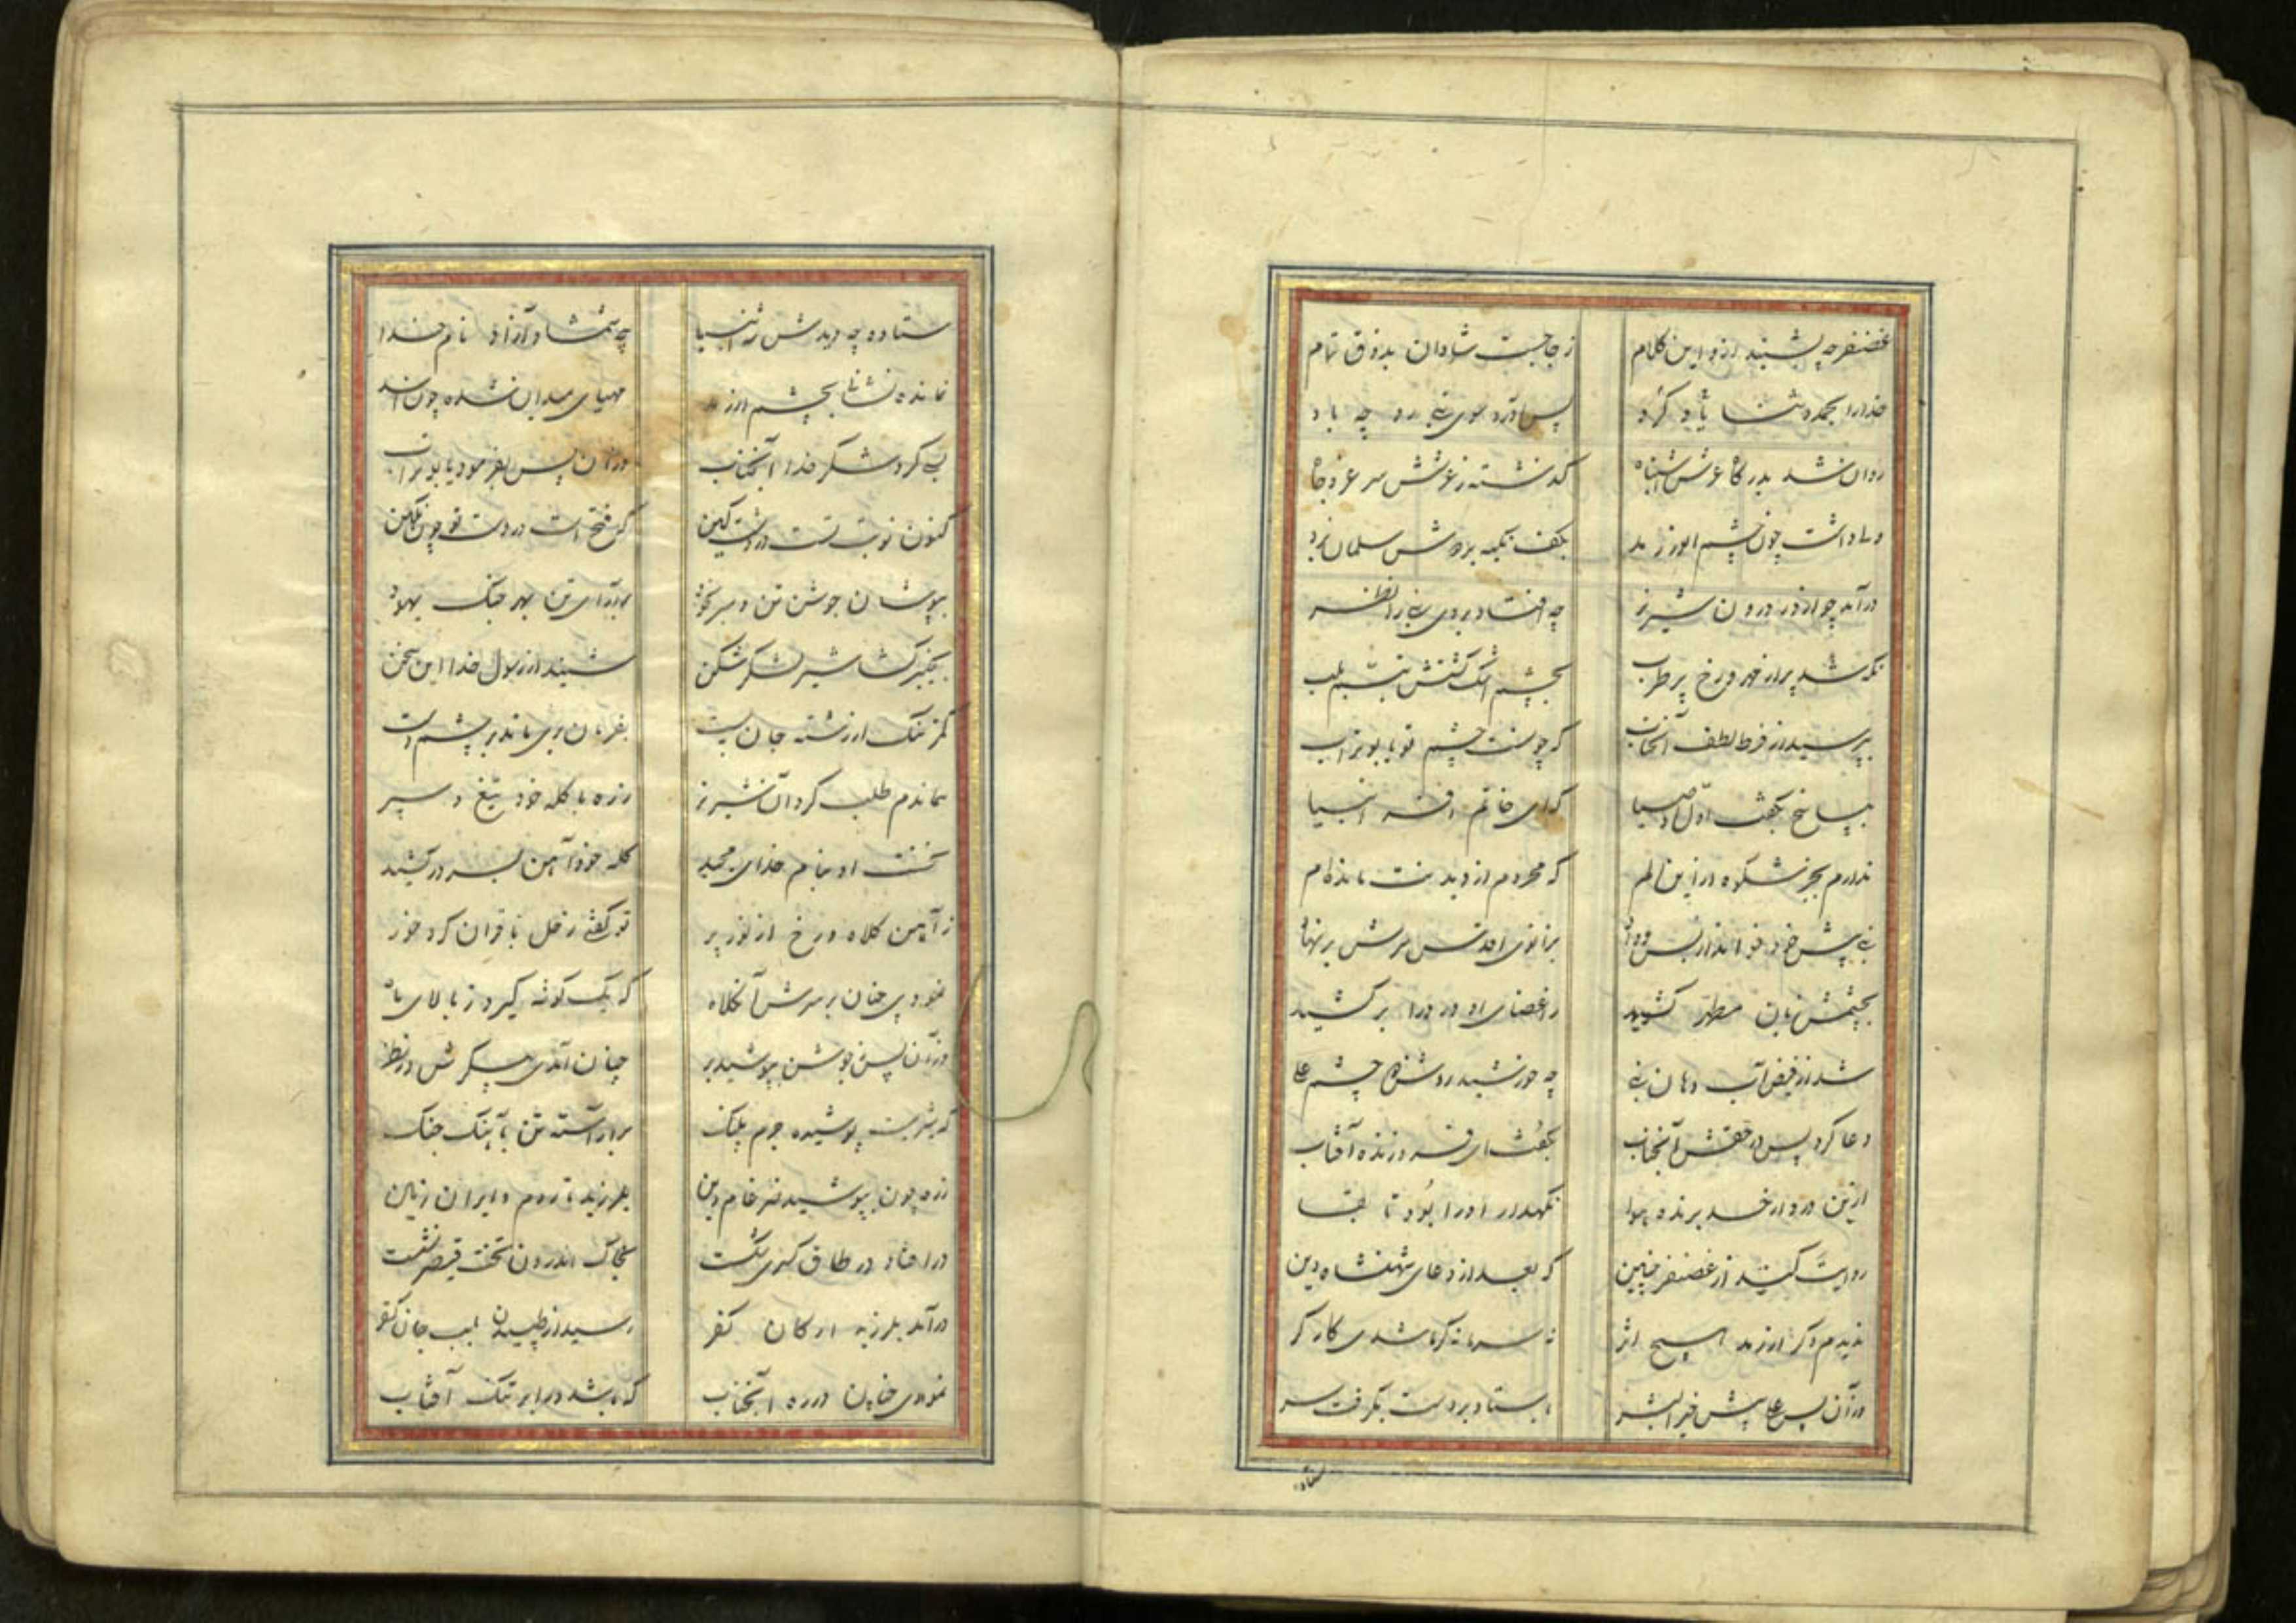 غضنفر چه بشنید ازو این کلام    ز جا جست شادان بذوق تمام
خدا را بحمد و ثنا یاد کرد    پس آورد سوی نبی رو چه باد
روان شد بدرگاه عرش اشتباه    گذشته ز عرشش سر عز و جاه
و ما داشت چون چشم او از رمد    بکف تکیه بر دوش سلمان زد
درآمد چو از در درون شیر نر    چه افتاد بر وی نبی را نظر
نگه شد پر از مهر و رخ پر طرب    بچشم اشک تبسم بلب
بپرسید از فرط لطف آنجناب    که چونست چشم تو یا بوتراب
بپاسخ بگفت اول اوصیا    که ای خاتم انبیا
ندارم بجز شکوه از این الم    که محروم از دیدنت مانده‌ام
نبی پیش خود خواند از بس وداد    بزانوی اقدس سرش بر نهاد
بچشمش زبان مطهر کشید    ز اعضای او درد را بر کشید
شد از فیض آب دهان نبی    چه خورشید روشن چشم علی
دعا کرد پس در حقش آنجناب    بگفت ای فروزنده آفتاب
ازین درد از خد برنده هوا    نگهدار او را بود تا بقا
روایت کنند از غضنفر چنین    که بعد از دعای شهنشاه دین
ندیدم دگر از رمد هیچ اثر    نه سرما نه گرما شدی کارگر
وز آن پس علی پیش خیر البشر    باستاد بر دست بگرفت سر
ستاده
ستاده چه دیدش شه انبیا    چه شمشاد آزاد نام خدا
نمانده نشانی بچشم از رمد    مهیای میدان شده چون اسد
بسی کرد شکر خدا آنجناب    وز آن پس بفرمود یا بوتراب
کنون نوبت تست در دشت کین    که فتح است در دست تو چون نگین
بپوشان جوشن تن و سر بخود    بیارای تن بهر جنگ یهود
بخیبرگشا شیر لشکر شکن    شنید از رسول خدا این سخن
کمر تنگ از رشته جان ببست    بفرمان بری ماند بر چشم دست
هماندم طلب کرد آن شیر نر    زره با کله خود تیغ و سپر
نخست او بنام خدای مجید    کله خود آهن بسر در کشید
ز آهن کلاه و رخ از نور پر    تو گفتی زحل با قران کرد خور
نمودی چنان بر سرش آن کلاه    که یک گوشه گیرد ز بالای ماه
وز آن پس جوشن بپوشید بر    چنان آمدی پیکرش در نظر
که شیریست پوشیده چرم پلنگ    بر آراسته تن بآهنگ جنگ
زره چون بپوشید ضرغام دین    بلرزید تا روم و ایران زمین
در افتاد در طاق کسری شکست    بخاک اندرون تخت قیصر نشست
درآمد بلرزه ارکان کفر    رسید از طپیدن بلب جان کفر
نمودی چنان در زره آنجناب    که باشد در ابر تنک آفتاب